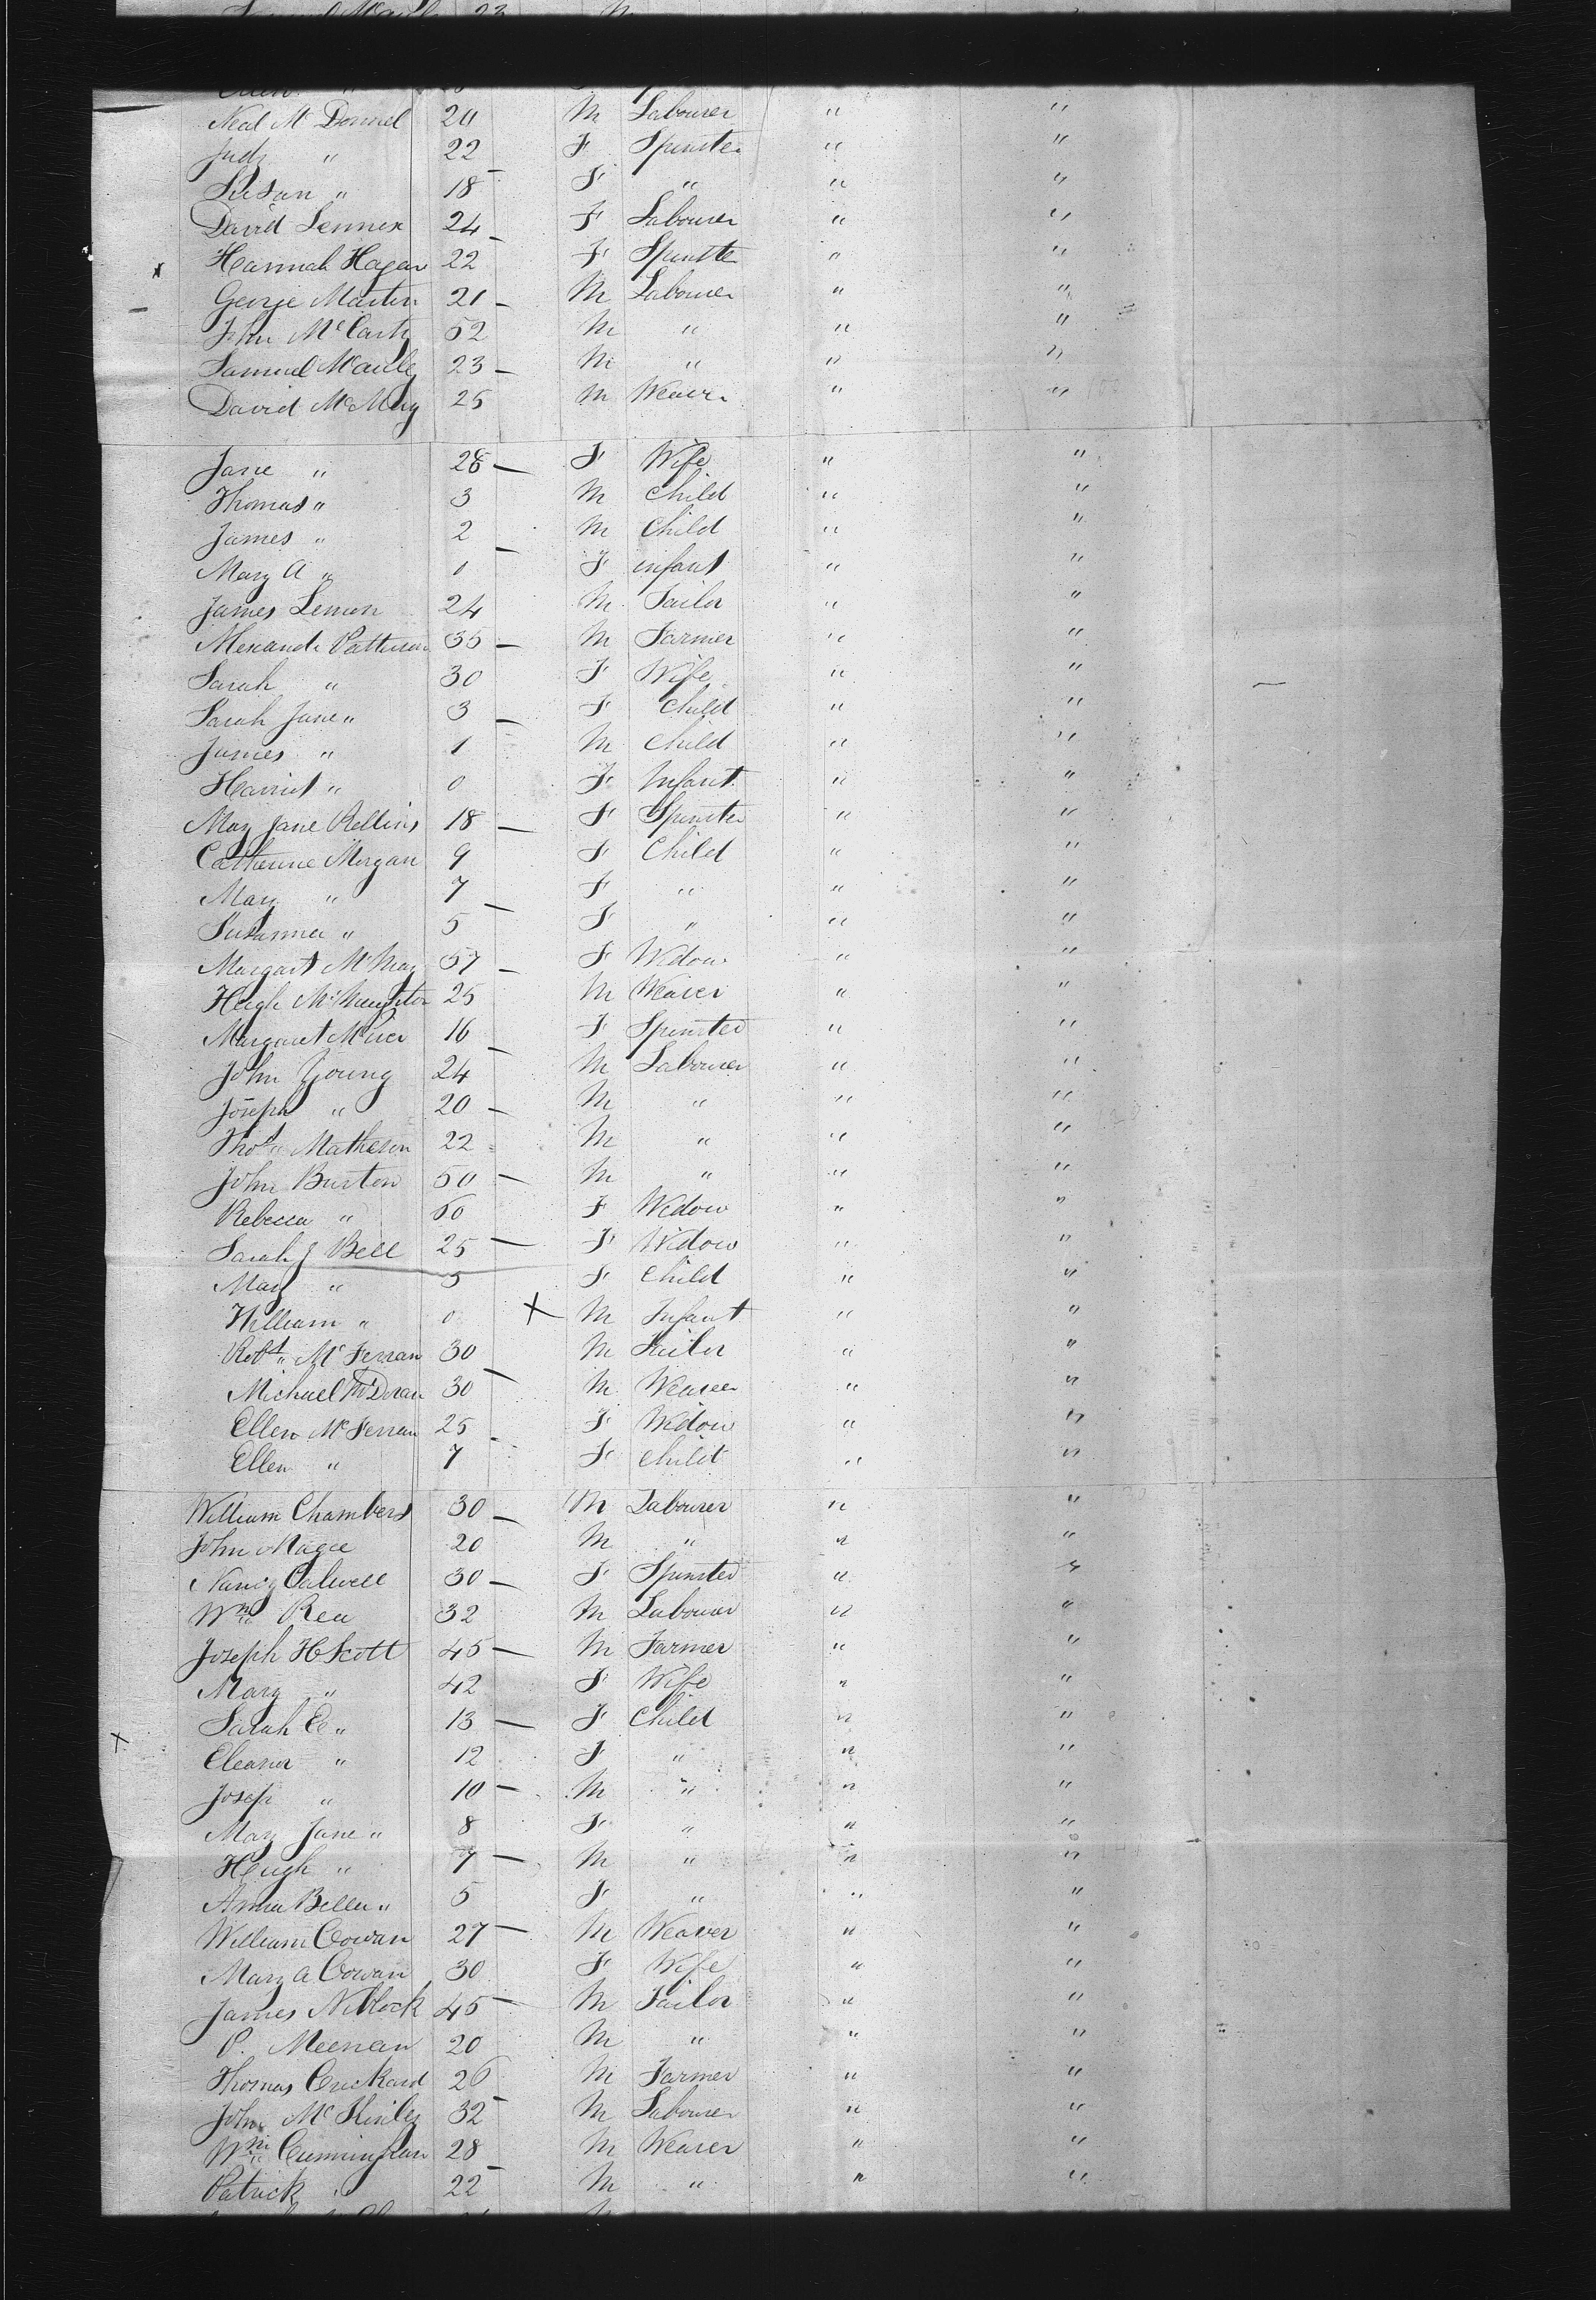 Samuel McAuly 23 M
Ellen "
Neal Mc Donnel 20 M Labourer " "
Judy " 22 F Spinster " "
Susan " 18 F " " "
David Lennex 24 F Labourer " "
Hannah Hagan 22 F Spinster " "
George Martin 21 M Labourer " "
John McCarty 52 M " " "
Samuel McAuley 23 M " " "
David McMay 25 M Weaver " "
Jane " 28 F Wife " "
Thomas " 3 M Child " "
James " 2 M Child " "
Mary A " 0 F infant " "
James Lemon 24 M Tailor " "
Alexande Patterson 35 M Farmer " "
Sarah " 30 F Wife " "
Sarah Jane " 3 F Child " "
James " 1 M Child " "
Harriet " 0 F Infant " "
Mary Jane Rollins 18 F Spinster " "
Catherine Morgan 9 F Child " "
Mary " 7 F " " "
Susanna " 5 F " " "
Margart McMay 57 F Widow " "
Hugh McNaughton 25 M Weaver " "
Margaret 16 F Spinster " "
John Young 24 M Labourer " "
Joseph " 20 M " " "
Thos Matheson 22 M " " "
John Burton 50 M " " "
Rebecca " 60 F Widow " "
Sarah J Bell 25 F Widow " "
Mary " 5 F Child " "
William " 0 X M Infant " "
Robt McFerran 30 M Tailor " "
Michael McDoran 30 M Weaver " "
Ellen McFerran 25 F Widow " "
Ellen " 7 F Child " "
William Chambers 30 M Labourer " "
John Magee 20 M " " "
Nancy Calwell 30 F Spinster " "
Wm Rea 32 M Labourer " "
Joseph H Scott 45 M Farmer " "
Mary " 42 F Wife " "
Sarah E " 13 F Child " "
Eleanor " 12 F " " "
Joseph " 10 M " " "
Mary Jane " 8 F " " "
Hugh " 7 M " " "
Anna Bella " 5 F " " "
William Cowan 27 M Weaver " "
Mary A Cowan 30 F Wife " "
James Niblock 45 M Tailor " "
P. Meenan 20 M " " "
Thomas Crickard 26 M Farmer " "
John McKinley 32 M Labourer " "
Wm Cunningham 28 M Weaver " "
Patrick " 22 M " " "